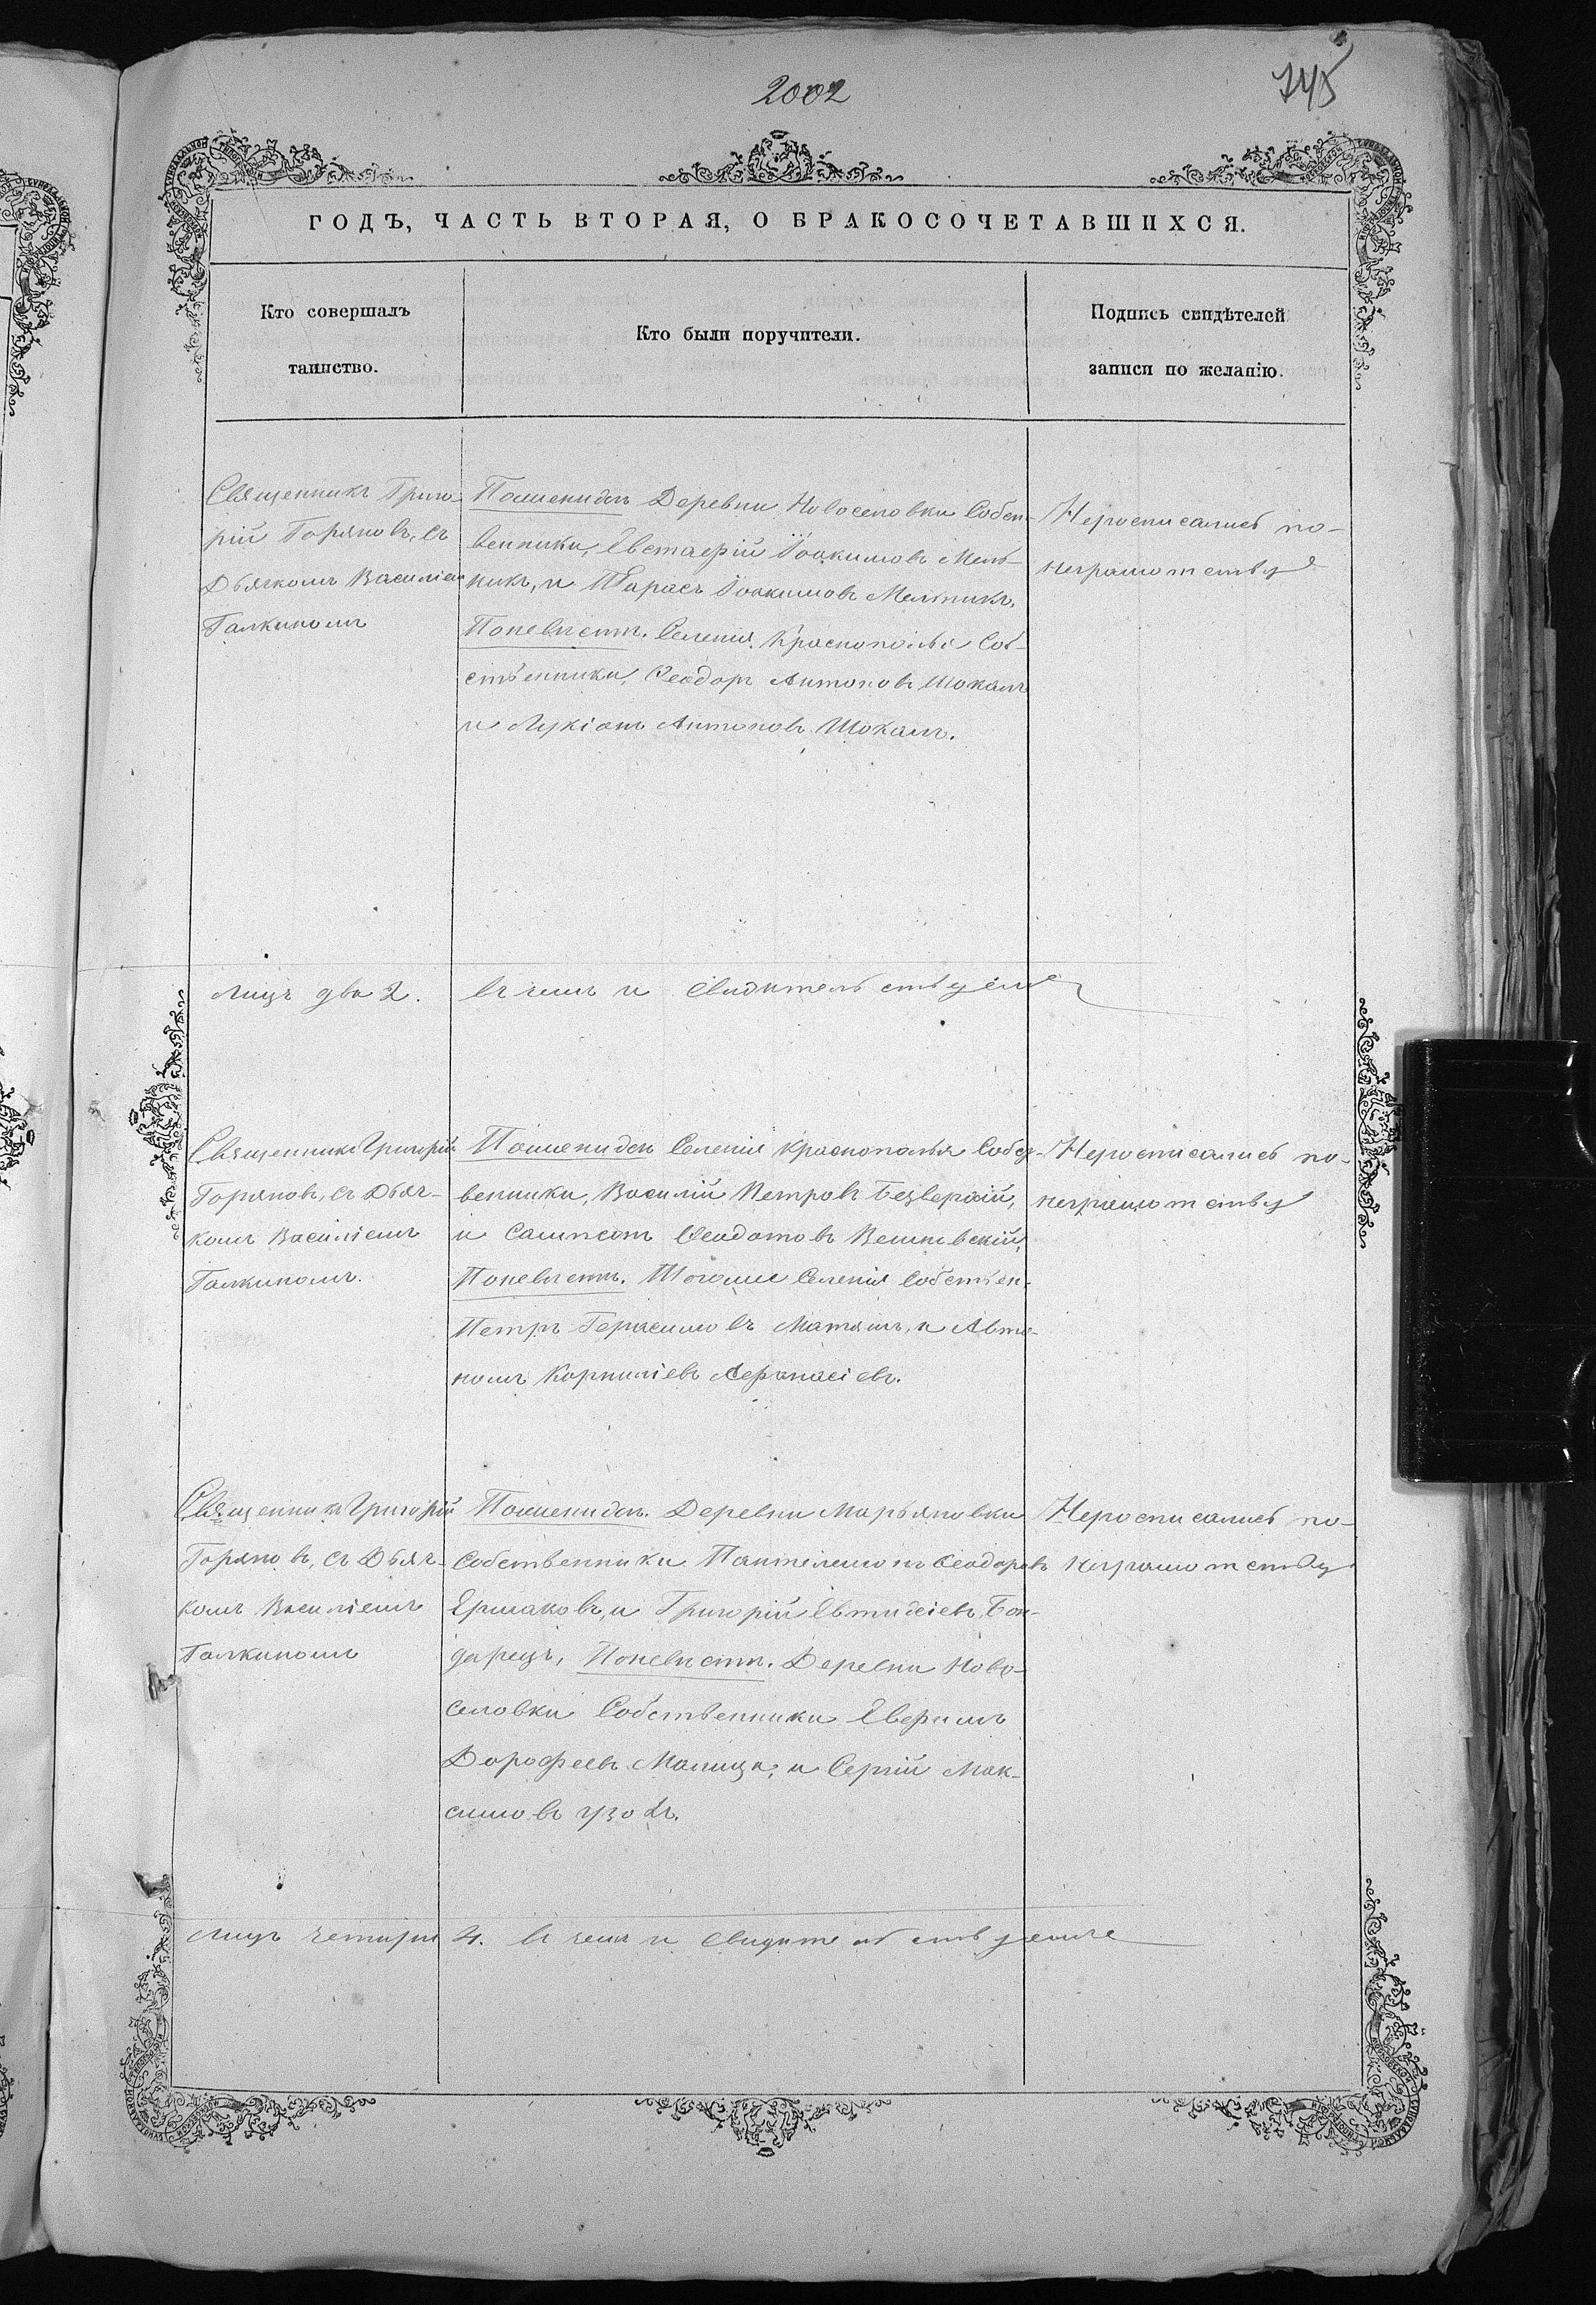 2002
745
ГОДЪ, ЧАСТЬ ВТОРАЯ, О БРАКОСОЧЕТАВШИХСЯ.
Кто совершалъ
таинство.
Кто были поручители.
Подпись свидѣтелей
записи по желанію.
Священникъ Григо-
рій Горяновъ, съ
Дьячкомъ Василіем
Галкиномъ
Пожениху Деревни Новоселовки Собст-
венники, Евстафій Іоакимовъ Мель-
никъ, и Тарасъ Іоакимовъ Мелникъ,
Поневѣстѣ. Селенія Краснополья Соб-
ственники, Ѳеодоръ Антоновъ Шокалъ
и Лукіанъ Антоновъ Шокалъ.
Неросписались по-
неграмотству
Лицъ два 2.
въ чемъ и свидительствуемъ
Священникъ Григорій
Горяновъ, съ Дьяч-
комъ Василіемъ
Галкиномъ.
Пожениху Селенія Краснополья Собст-
венники, Василій Петровъ Безверхій,
и Сампсонъ Ѳеодотовъ
Поневѣстѣ. Тогоже Селенія Собствен-
Петръ Герасимовъ Матяшъ, и Авто-
номъ Корниліевъ Аѳанасіевъ.
Неросписались по-
неграмотству
Священникъ Григорій
Горяновъ, съ Дьяч-
комъ Василіемъ
Галкиномъ
Пожениху. Деревни Марьяновки
Собственники Пантелемонъ Ѳеодоровъ
Ермаковъ, и Григорій Евтихіевъ, Бон-
дарецъ, Поневѣстѣ. Деревни Ново-
селовки Собственники Евфимъ
Дорофеевъ Малица, и Сергій Мак-
симовъ
Неросписались по-
неграмотству
Лицъ четыри 4. въ чемъ и свидительствуемъ